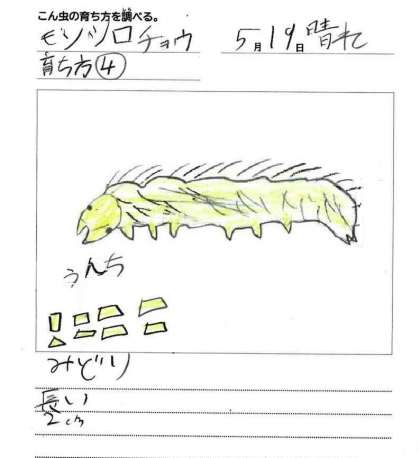 こん虫の育ち方を調べる。
モンシロチョウ 5月19日晴れ
育ち方④
うんち
みどり
長い
2cm